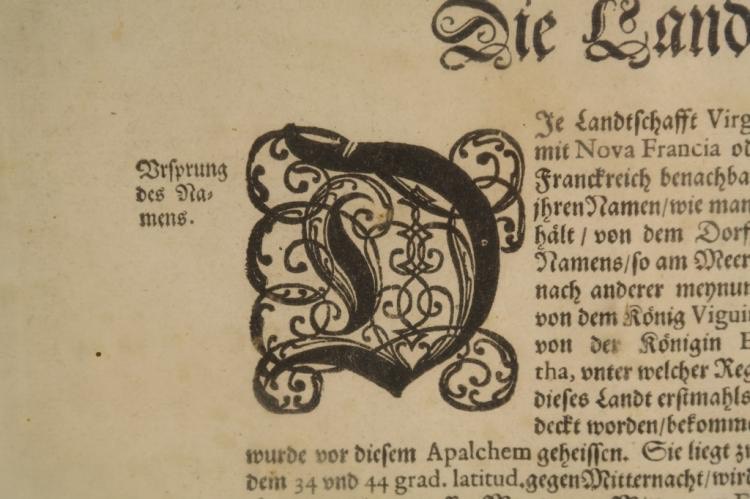 Die Land
Vrsprung
des Na-
mens.
DJe Landtschafft Virg
mit Nova Francia od
Franckreich benachba
jhren Namen/wie man
hält / von dem Dorf
Namens/so am Meer
nach anderer meynun
von dem König Vigui
von der Königin E
tha, vnter welcher Reg
dieses Landt erstmahls
deckt worden/bekomme
wurde vor diesem Apalchem geheissen. Sie liegt zw
dem 34 vnd 44 grad. latitud. gegen Mitternacht/wird